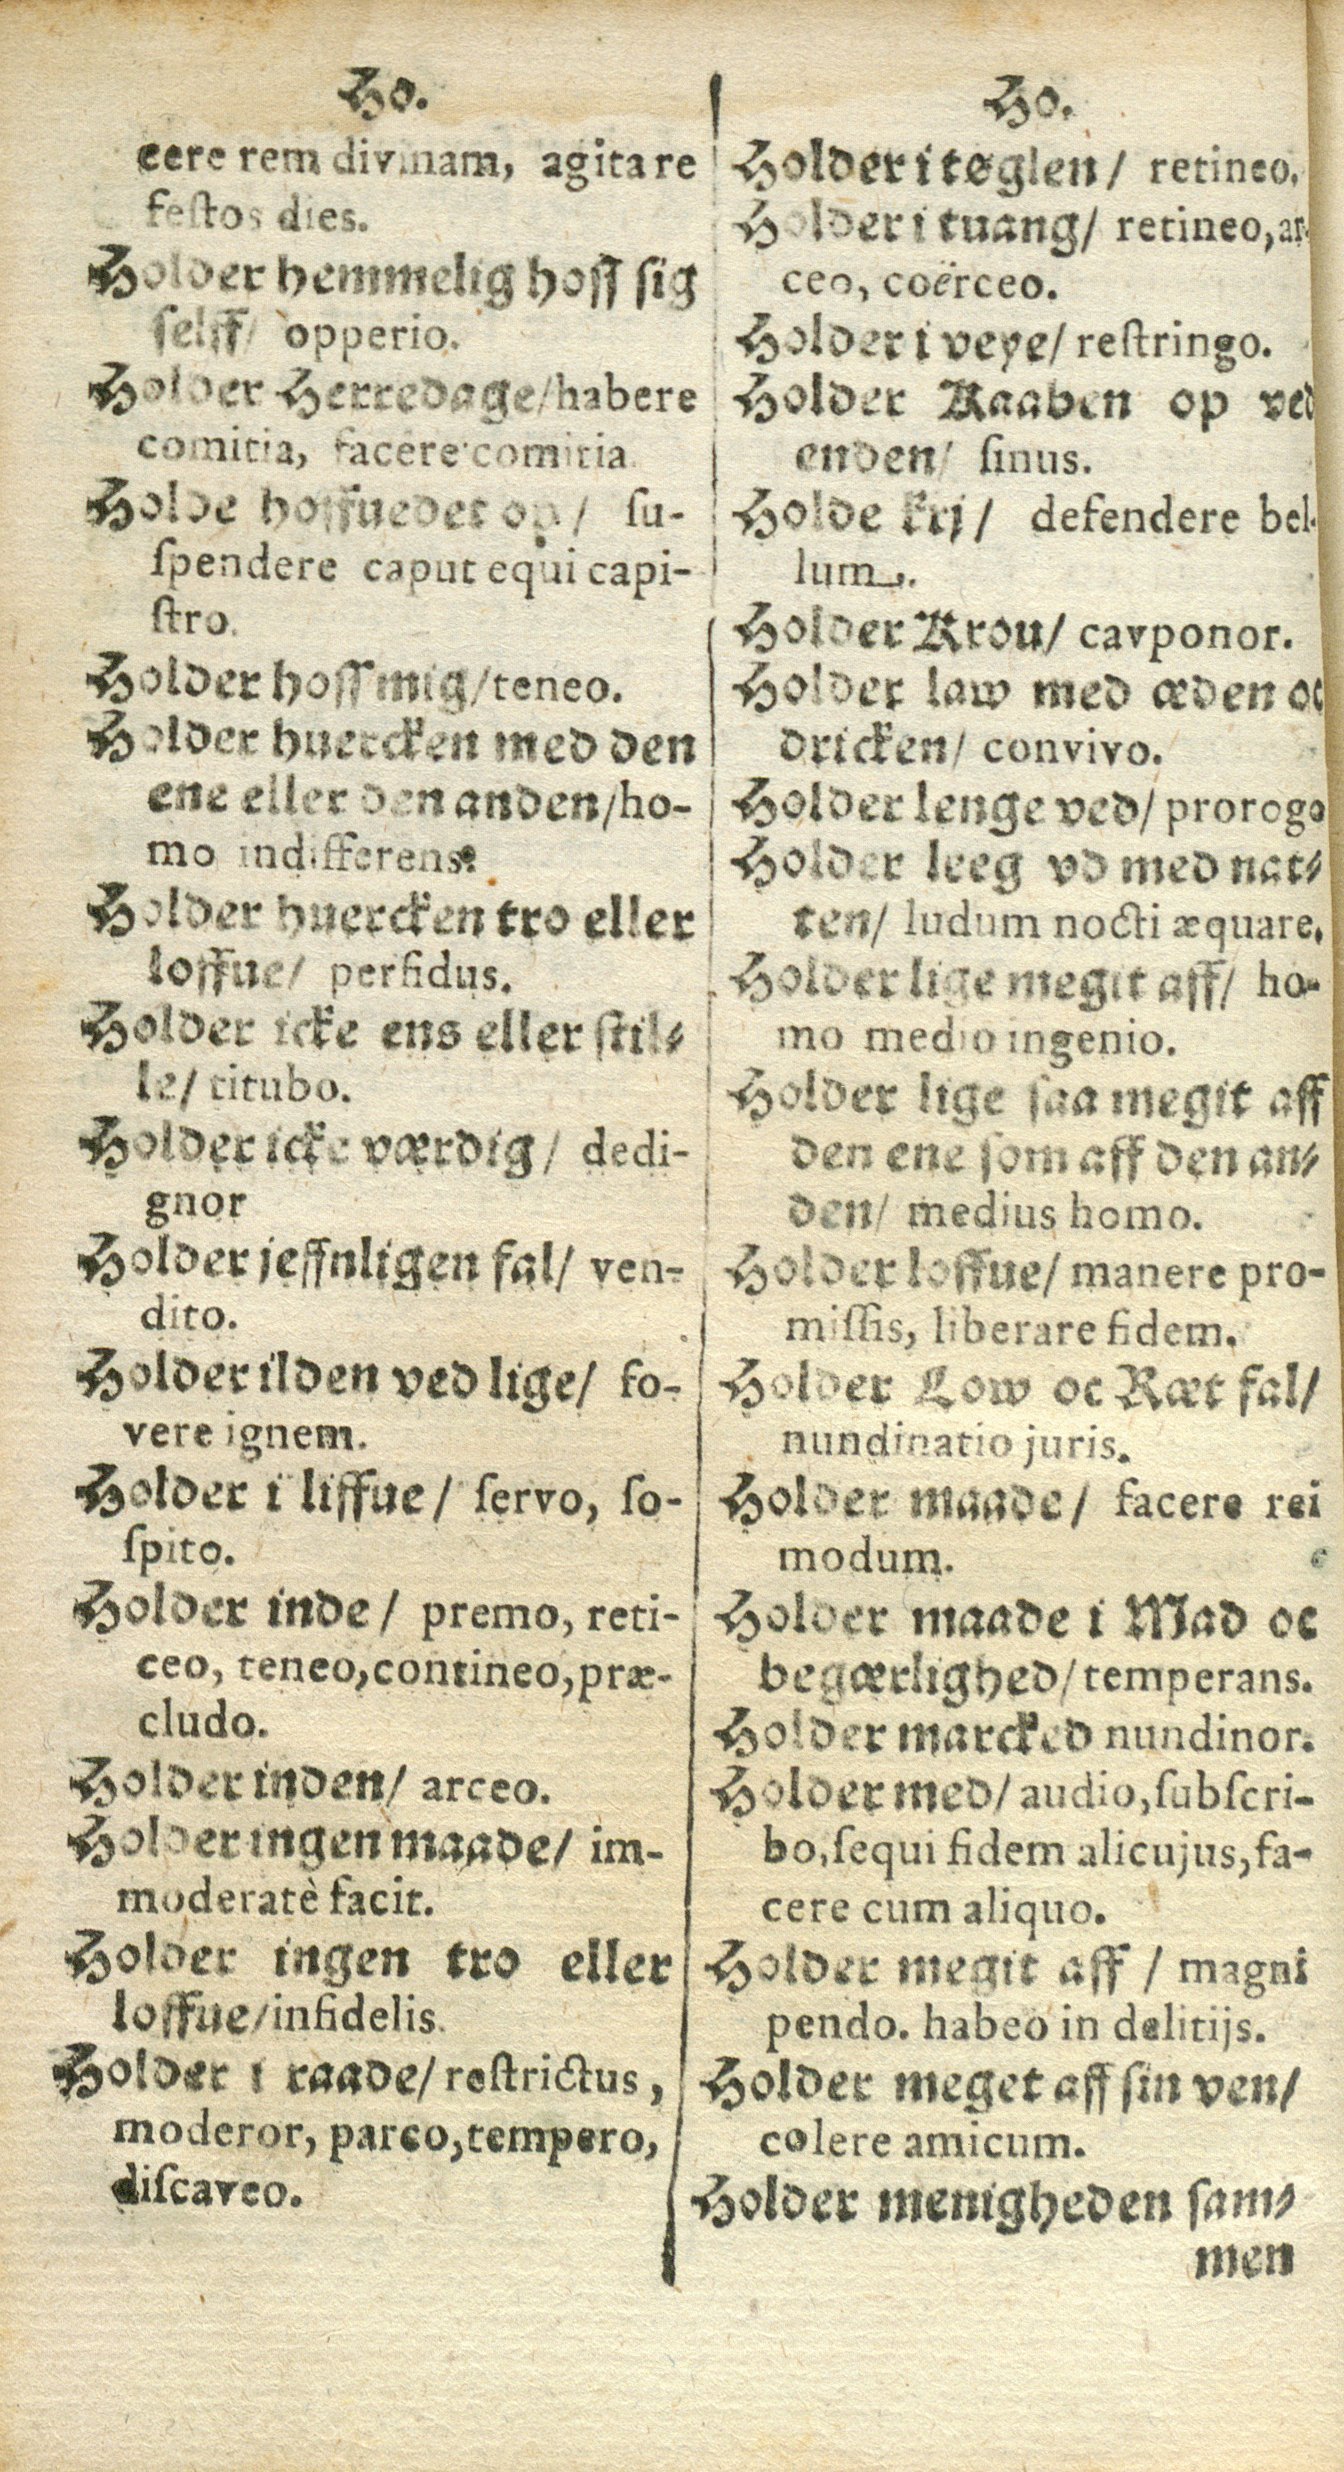 Ho.
cere rem divinam, agitare
feſtos dies.
Holder hemmelig hoſſ ſig
ſelff/ opperio.
Holder Herredage/habere
comitia, facere comitia.
Holde hoffuedet op/ ſu-
ſpendere caput equi capi-
ſtro.
Holder hoſſ mig/teneo.
Holder huercken med den
ene eller den anden/ho-
mo indifferens.
Holder huercken tro eller
loffue/ perfidus.
Holder icke ens eller ſtil⸗
le/ titubo.
Holder icke værdig/ dedi-
gnor
Holder jeffnligen fal/ ven-
dito.
Holder ilden ved lige/ fo-
vere ignem.
Holder i liffue/ ſervo, ſo-
ſpito.
Holder inde/ premo, reti-
ceo, teneo, contineo, præ-
cludo.
Holder inden/ arceo.
Holder ingen maade/ im-
moderatè facit.
Holder ingen tro eller
loffue/infidelis.
Holder i raade/reſtrictus,
moderor, parco, tempero,
diſcaveo.
Ho.
Holder i tøglen/ retineo.
Holder i tuang/ retineo, ar-
ceo, coërceo.
Holder i veye/ reſtringo.
Holder Kaaben op ved
enden/ ſinus.
Holde krj/ defendere bel-
lum.
Holder Krou/ cavponor.
Holder law med æden oc
dricken/ convivo.
Holder lenge ved/ prorogo
Holder leeg vd med nat⸗
ten/ ludum nocti æquare.
Holder lige megit aff/ ho-
mo medio ingenio.
Holder lige ſaa megit aff
den ene ſom aff den an⸗
den/ medius homo.
Holder loffue/ manere pro-
miſſis, liberare fidem.
Holder Low oc Ræt fal/
nundinatio juris.
Holder maade/ facere rei
modum.
Holder maade i Mad oc
begærlighed/ temperans.
Holder marcked nundinor.
Holder med/ audio, ſubſcri-
bo, ſequi fidem alicujus, fa-
cere cum aliquo.
Holder megit aff / magni
pendo. habeo in delitijs.
Holder meget aff ſin ven/
colere amicum.
Holder menigheden ſam⸗
men